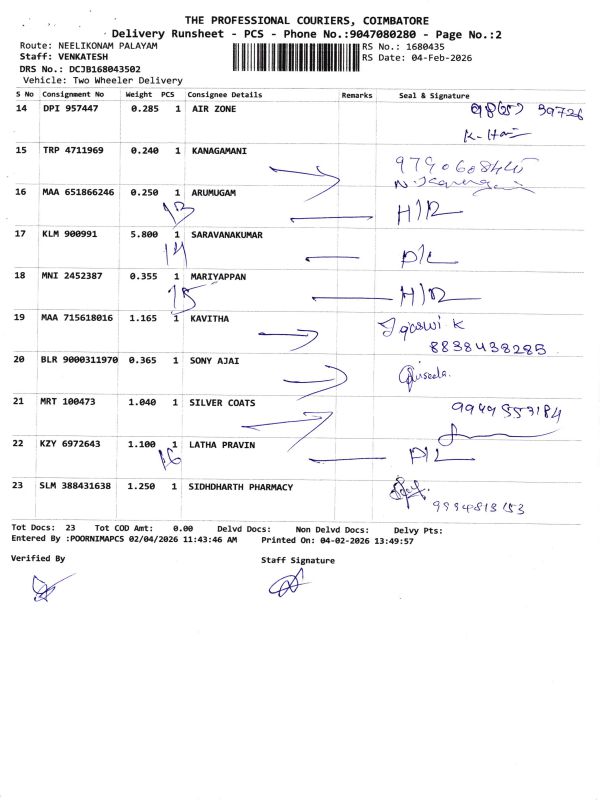 THE PROFESSIONAL COURIERS, COIMBATORE
Delivery Runsheet - PCS - Phone No.:9047080280 - Page No.:2
Route: NEELIKONAM PALAYAM RS No.: 1680435
Staff: VENKATESH RS Date: 04-Feb-2026
DRS No.: DCJB168043502
Vehicle: Two Wheeler Delivery
S No Consignment No Weight PCS Consignee Details Remarks Seal & Signature
14 DPI 957447 0.285 1 AIR ZONE
15 TRP 4711969 0.240 1 KANAGAMANI
16 MAA 651866246 0.250 1 ARUMUGAM
13 H/R
17 KLM 900991 5.800 1 SARAVANAKUMAR
14 D/L
18 MNI 2452387 0.355 1 MARIYAPPAN
15 H/R
19 MAA 715618016 1.165 1 KAVITHA
8838438285
20 BLR 9000311970 0.365 1 SONY AJAI
21 MRT 100473 1.040 1 SILVER COATS
22 KZY 6972643 1.100 1 LATHA PRAVIN
16 D/L
23 SLM 388431638 1.250 1 SIDHDHARTH PHARMACY
Tot Docs: 23 Tot COD Amt: 0.00 Delvd Docs: Non Delvd Docs: Delvy Pts:
Entered By :POORNIMAPCS 02/04/2026 11:43:46 AM Printed On: 04-02-2026 13:49:57
Verified By Staff Signature